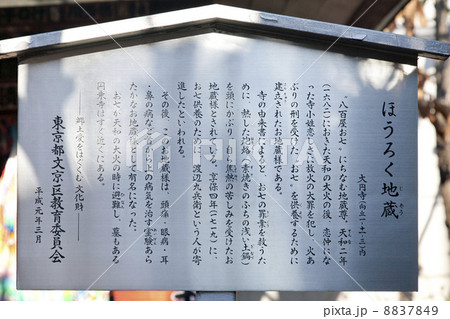 ほうろく地蔵
大円寺(向丘一-十一-三)内
"八百屋お七"にちなむ地蔵尊。天和二年
(一六八二)におきた天和の大火の後、恋仲にな
った寺小姓恋しさに放火の大罪を犯し、火あ
ぶりの刑を受けた"お七"を供養するために
建立されたお地蔵様である。
寺の由来書によると、お七の罪業を救うた
めに、熱した焙烙(素焼きのふちの浅い土鍋)
を頭にかぶり、自ら焦熱の苦しみを受けたお
地蔵様とされている。享保四年(一七一九)に、
お七供養のために、渡辺九兵衛という人が寄
進したといわれる。
その後、このお地蔵様は、頭痛・眼病・耳
・鼻の病など首から上の病気を治す霊験あら
たかなお地蔵様として有名になった。
お七が天和の大火の時に避難し、墓もある
円乗寺はすぐ近くにある。
―郷土愛をはぐくむ文化財―
東京都文京区教育委員会
平成元年三月
8837849